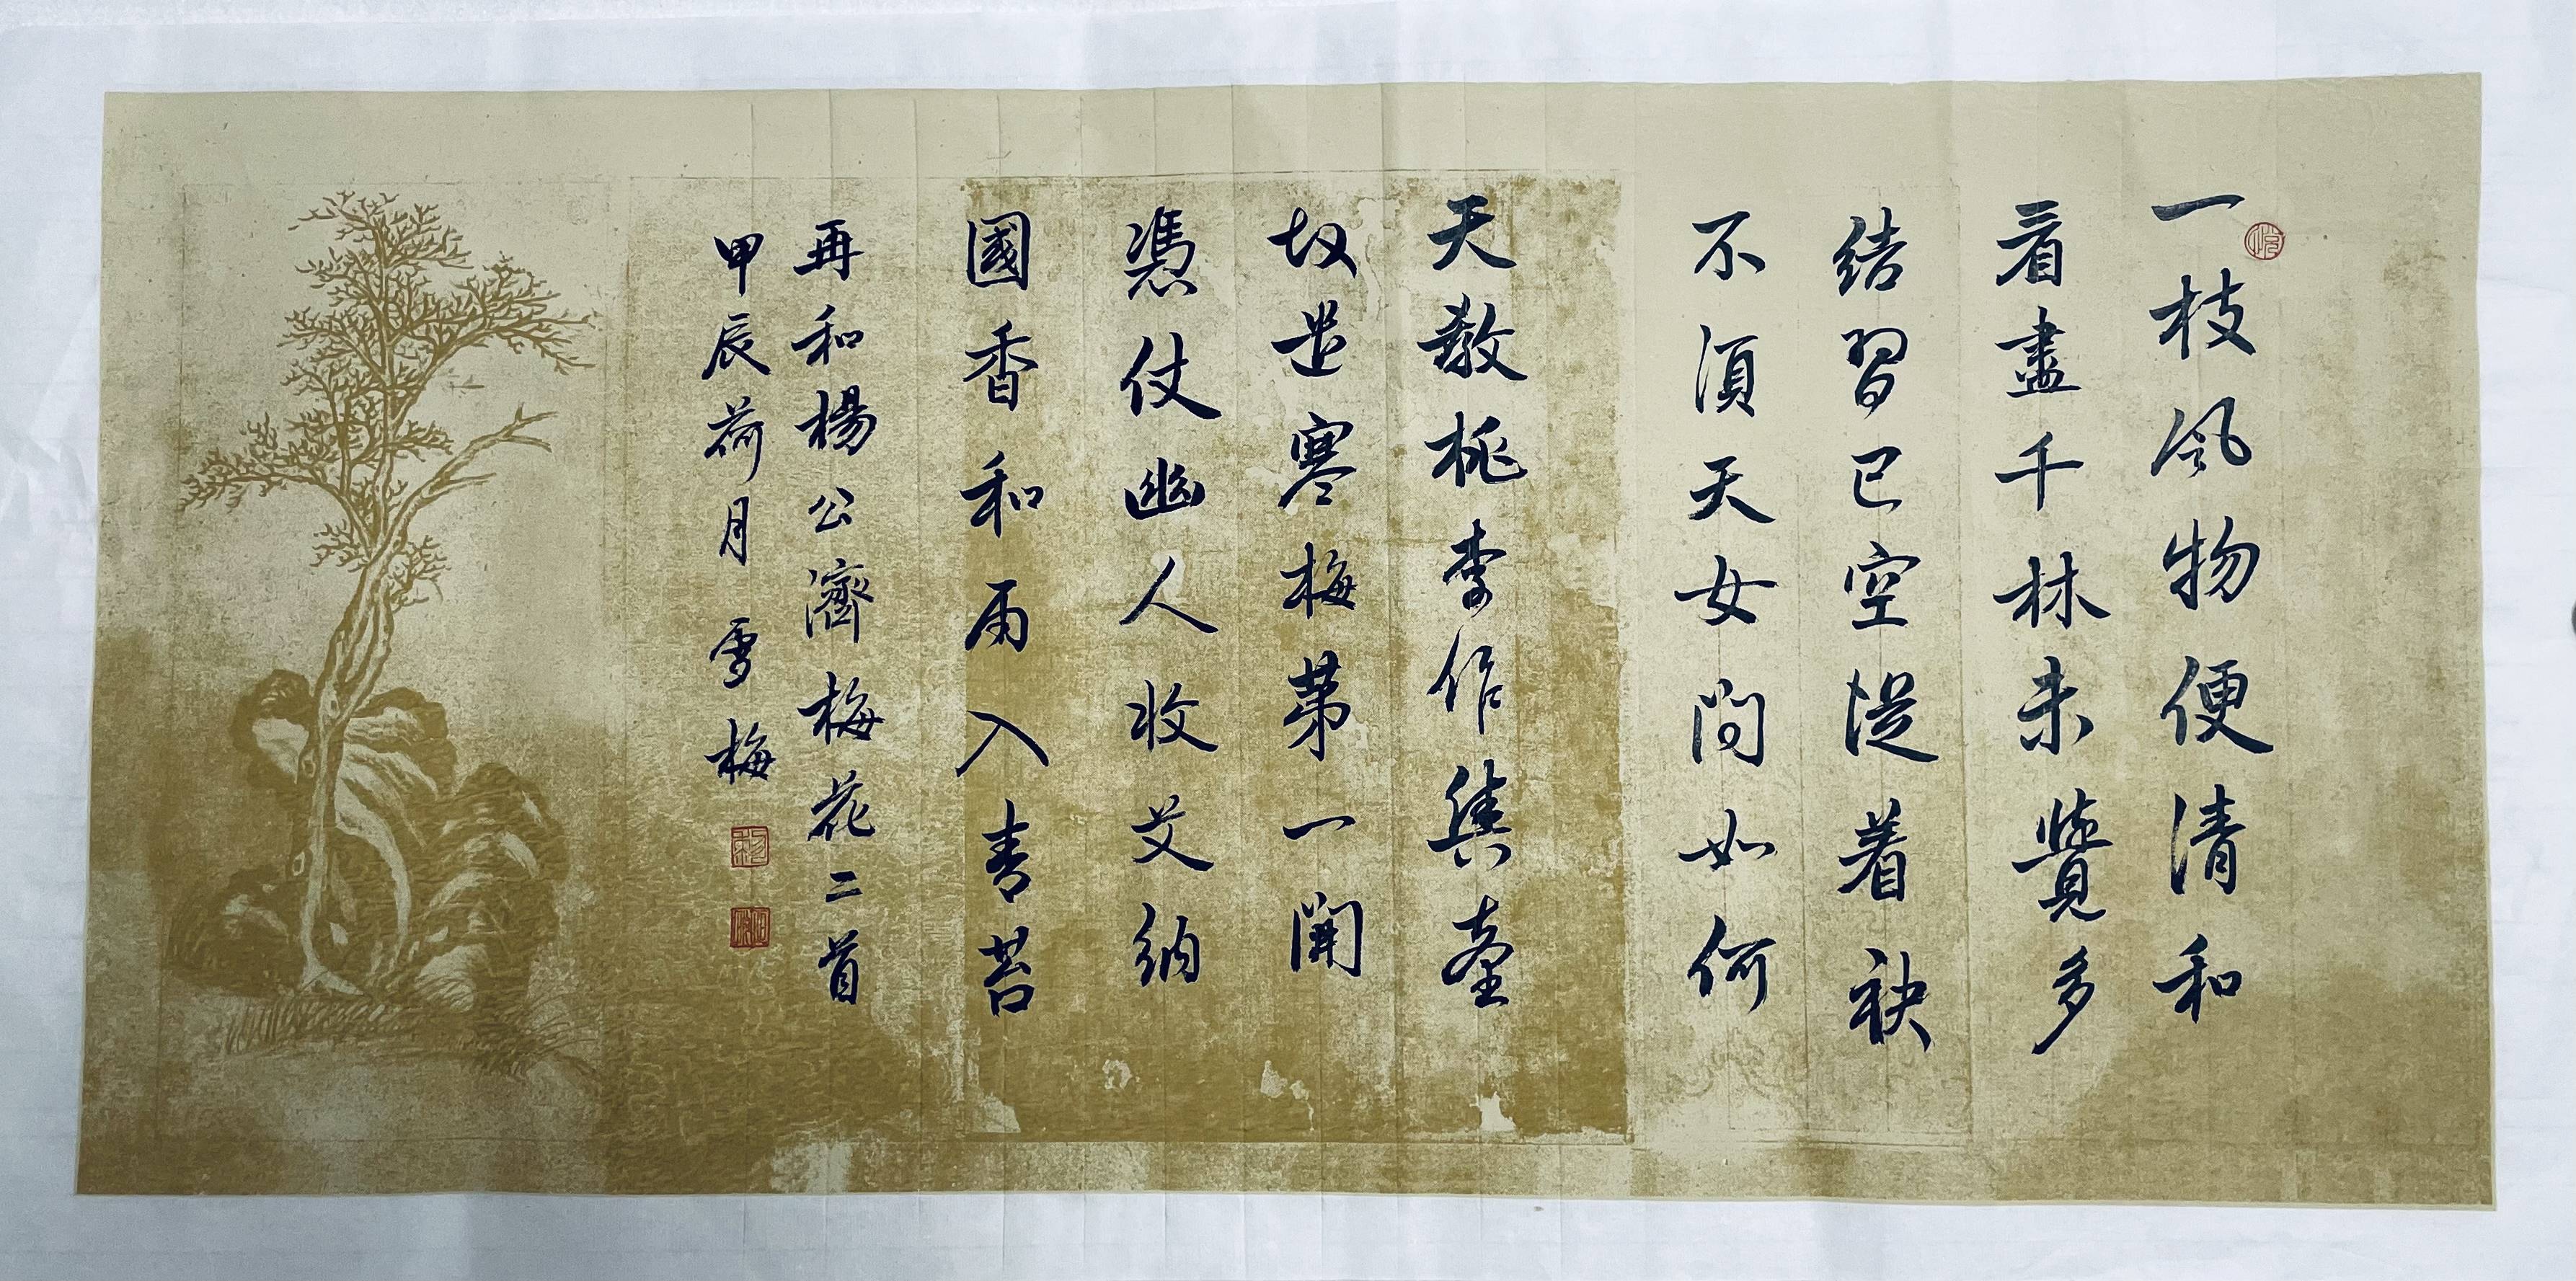 一枝風物便清和
看盡千林未覺多
結習已空從着袂
不須天女問如何
天教桃李作輿臺
故遣寒梅第一開
憑仗幽人收艾納
國香和雨入青苔
再和楊公濟梅花二首
甲辰荷月 雪梅